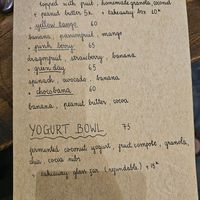 topped with fruit, homemade granola, coconut
+ peanut butter 5k + takeaway box 10k
• yellow tango 60
banana, passionfruit, mango
• pink berry 65
dragonfruit, strawberry, banana
• green day 65
spinach, avocado, banana
• chocobana 60
banana, peanut butter, cocoa
YOGURT BOWL 75
fermented coconut yogurt, fruit compote, granola,
chia, cocoa nibs
+ takeaway glass jar (refundable) + 15k